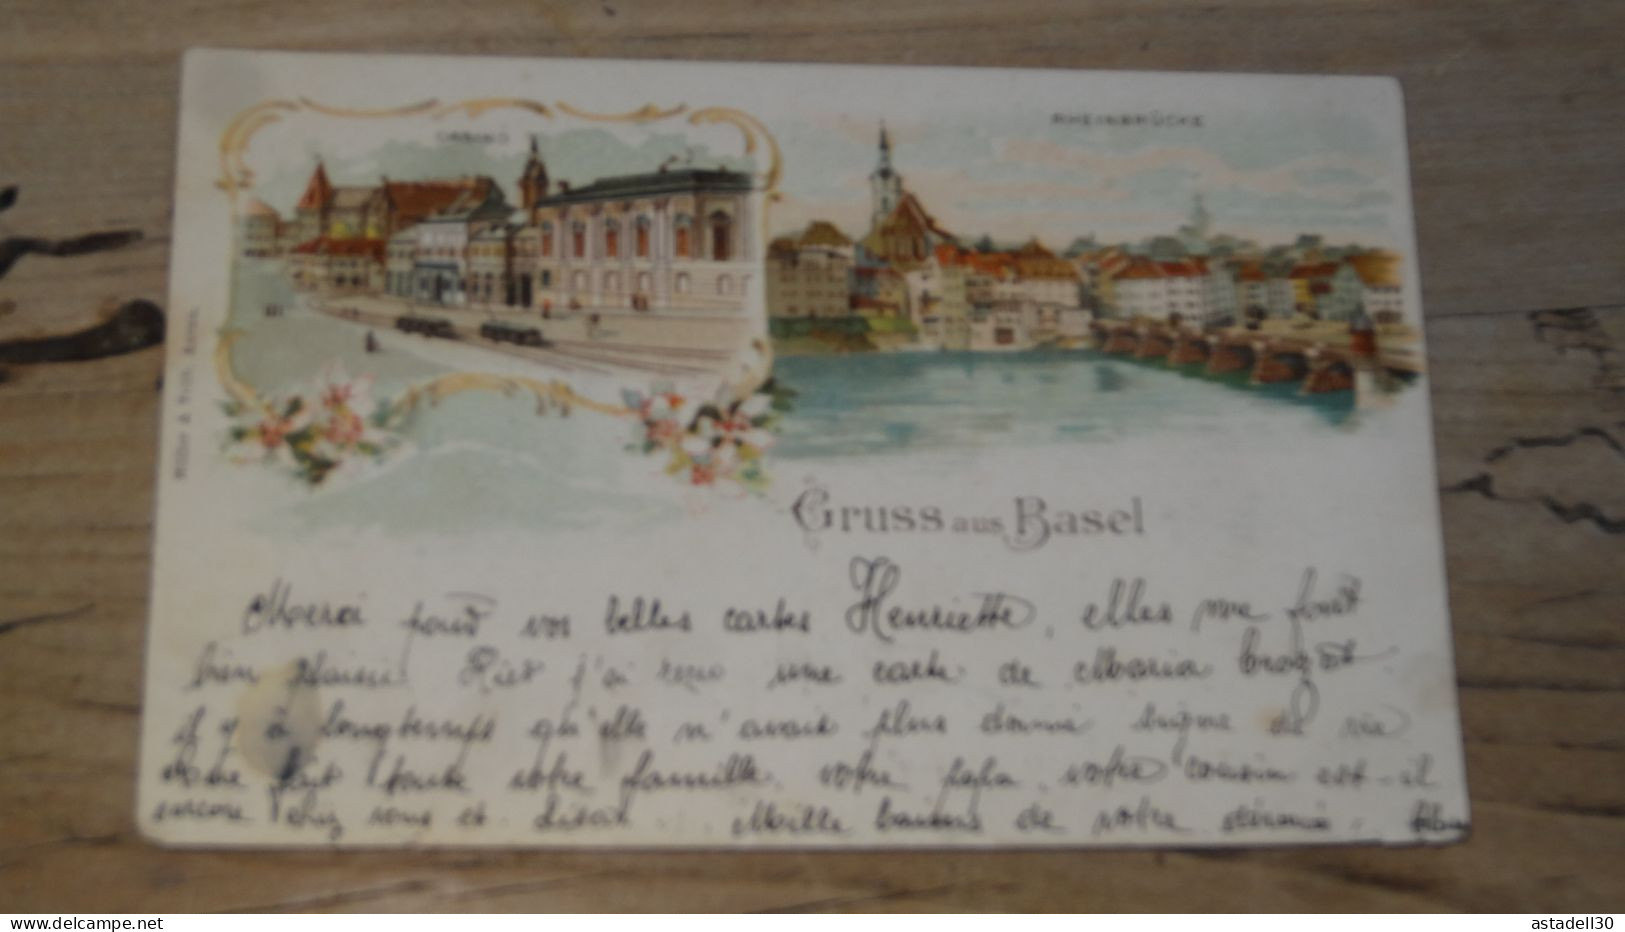 CASINO
RHEINBRÜCKE
Müller & Trüb, Aarau.
Gruss aus Basel
Merci pour vos belles cartes Henriette, elles me font
bien plaisir. Hier j'ai reçu une carte de Maria
il y a longtemps qu'elle n'avait plus donné signe de vie
votre famille, votre papa, votre cousin est-il
encore chez vous et Mille baisers de votre
www.delcampe.net
astadell30